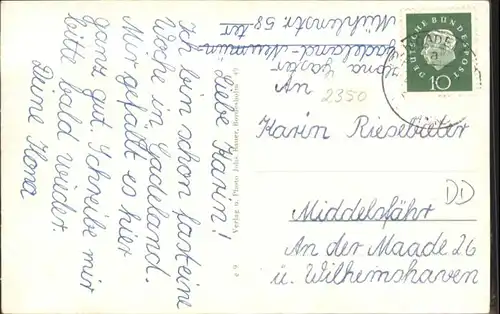 Liebe Karin!
Ich bin schon fast eine
Woche in Gadeland.
Mir gefällt es hier
ganz gut. Schreibe mir
bitte bald wieder.
Deine Ilona
Ilona
Gadeland-Neumün-
Mühlenstr 58 ster
DEUTSCHE BUNDESPOST
10
An
2350
Karin Riesebieter
DD
Middelsfähr
An der Maade 26
ü. Wilhemshaven
Verlag u. Photo Julius
e 9